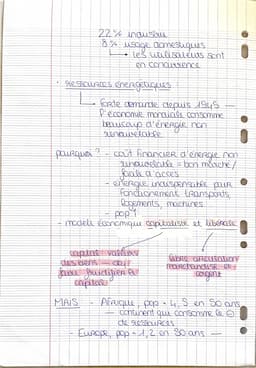 22% industriel
8% usage domestiques
↳ les utilisateurs sont
en concurrence
• Ressources énergétiques
↳ forte demande depuis 1945 —
l'économie mondiale consomme
beaucoup d'énergie non
renouvelable
pourquoi ? - coût financier d'énergie non
renouvelable = bon marché /
facile d'accès
- énergie indispensable pour
fonctionnement transports,
logements, machines
- pop ↑
- modèle économique capitaliste et libérale
capital valeur
des biens —
faire fructifier le
capital
libre circulation
marchandise et
argent
MAIS - Afrique, pop × 4,5 en 50 ans
— continent qui consomme le ⊖
de ressources
- Europe, pop × 1,2 en 50 ans —